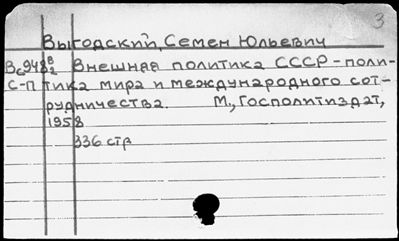 3
Выгодский, Семен Юльевич
Вс948 В2 Внешняя политика СССР - поли-
С-П тика мира и международного сот-
рудничества. М., Госполитиздат,
1958
336 стр